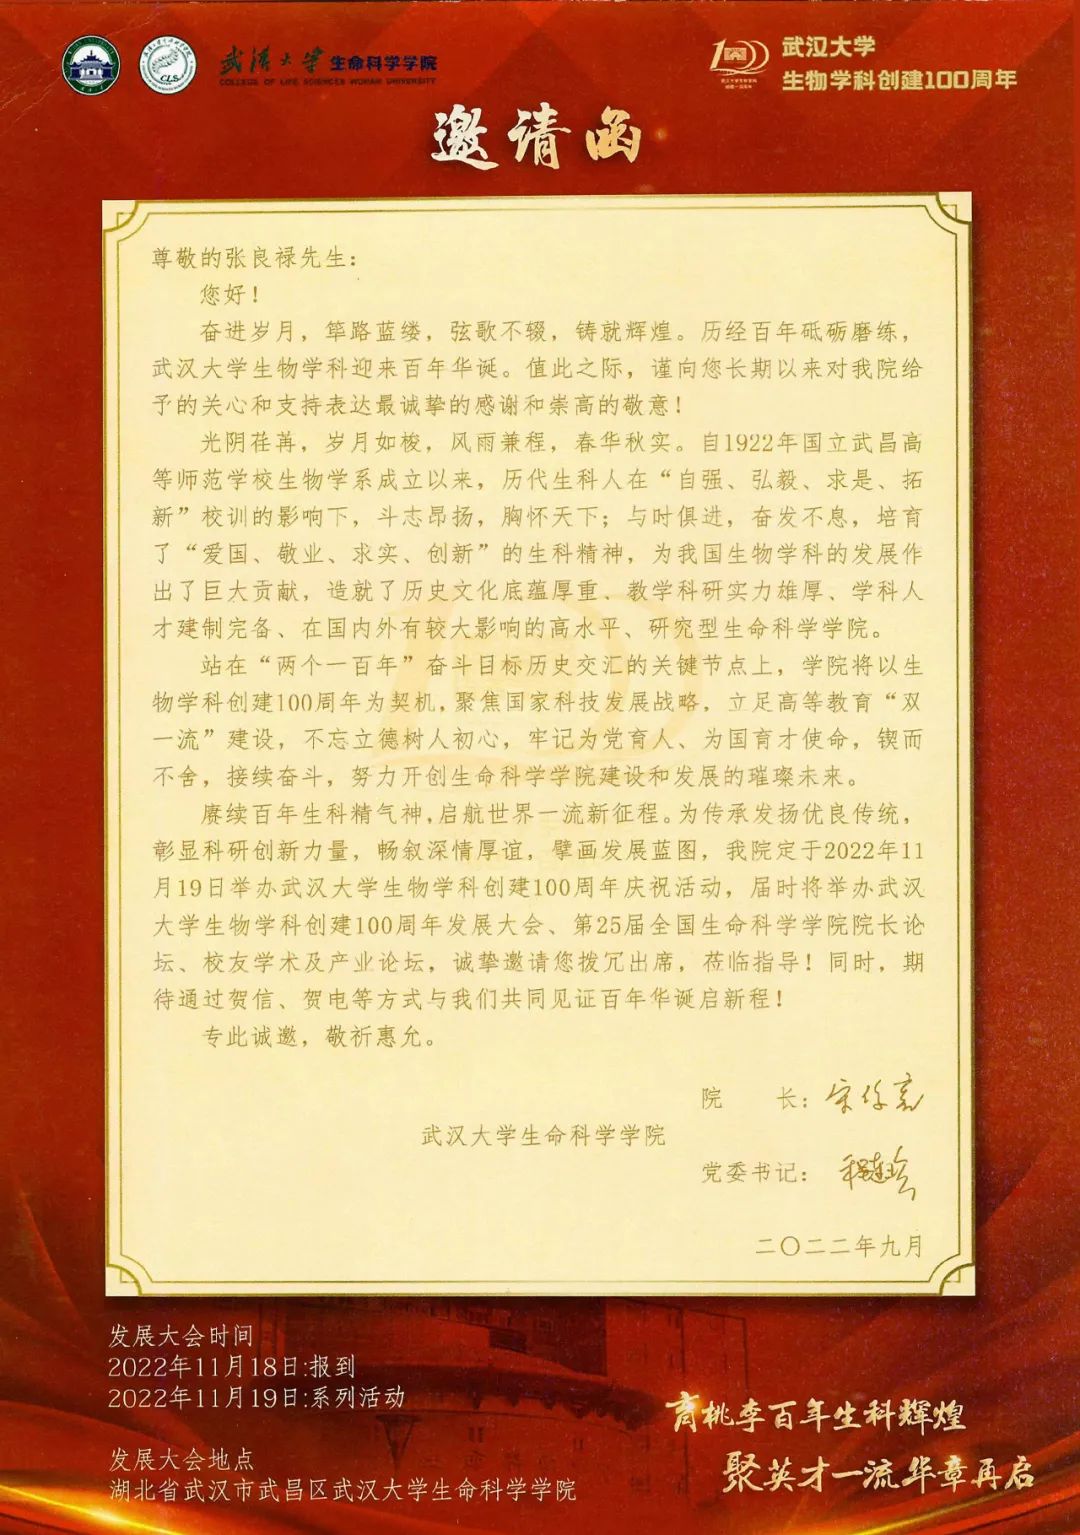 武汉大学 生命科学学院
COLLEGE OF LIFE SCIENCES WUHAN UNIVERSITY
CLS
100
武汉大学
生物学科创建100周年
邀请函
尊敬的张良禄先生：
您好！
奋进岁月，筚路蓝缕，弦歌不辍，铸就辉煌。历经百年砥砺磨练，
武汉大学生物学科迎来百年华诞。值此之际，谨向您长期以来对我院给
予的关心和支持表达最诚挚的感谢和崇高的敬意！
光阴荏苒，岁月如梭，风雨兼程，春华秋实。自1922年国立武昌高
等师范学校生物学系成立以来，历代生科人在“自强、弘毅、求是、拓
新”校训的影响下，斗志昂扬，胸怀天下；与时俱进，奋发不息，培育
了“爱国、敬业、求实、创新”的生科精神，为我国生物学科的发展作
出了巨大贡献，造就了历史文化底蕴厚重、教学科研实力雄厚、学科人
才建制完备、在国内外有较大影响的高水平、研究型生命科学学院。
站在“两个一百年”奋斗目标历史交汇的关键节点上，学院将以生
物学科创建100周年为契机，聚焦国家科技发展战略，立足高等教育“双
一流”建设，不忘立德树人初心，牢记为党育人、为国育才使命，锲而
不舍，接续奋斗，努力开创生命科学学院建设和发展的璀璨未来。
赓续百年生科精气神，启航世界一流新征程。为传承发扬优良传统，
彰显科研创新力量，畅叙深情厚谊，擘画发展蓝图，我院定于2022年11
月19日举办武汉大学生物学科创建100周年庆祝活动，届时将举办武汉
大学生物学科创建100周年发展大会、第25届全国生命科学学院院长论
坛、校友学术及产业论坛，诚挚邀请您拨冗出席，莅临指导！同时，期
待通过贺信、贺电等方式与我们共同见证百年华诞启新程！
专此诚邀，敬祈惠允。
院 长：宋保亮
武汉大学生命科学学院
党委书记：
二〇二二年九月
发展大会时间
2022年11月18日:报到
2022年11月19日:系列活动
发展大会地点
湖北省武汉市武昌区武汉大学生命科学学院
育桃李百年生科辉煌
聚英才一流华章再启